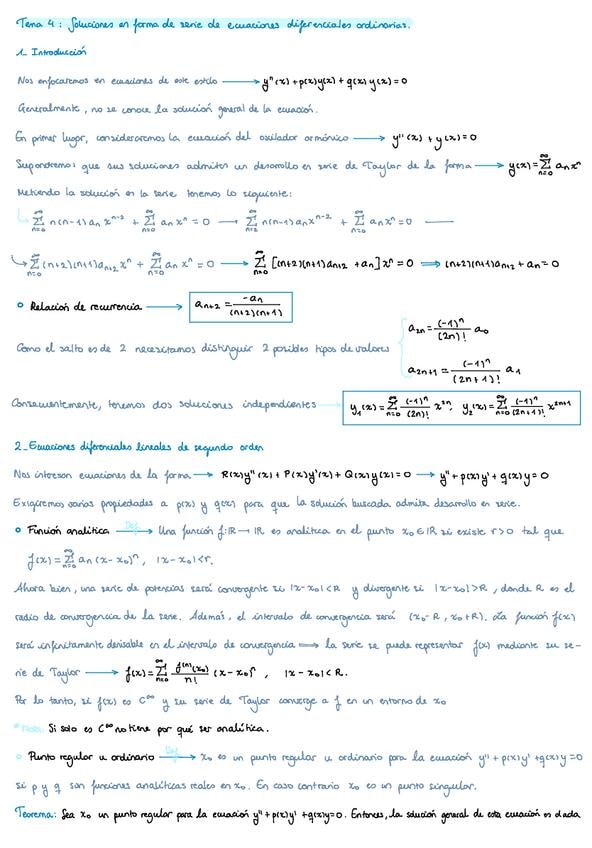 Tema 4: Soluciones en forma de serie de ecuaciones diferenciales ordinarias.
1_ Introducción
Nos enfocaremos en ecuaciones de este estilo → y''(x) + p(x)y(x) + q(x)y(x) = 0
Generalmente, no se conoce la solución general de la ecuación.
En primer lugar, consideraremos la ecuación del oscilador armónico → y''(x) + y(x) = 0
Supondremos que sus soluciones admiten un desarrollo en serie de Taylor de la forma → y(x) = ∑_{n=0}^{∞} aₙxⁿ
Metiendo la solución en la serie tenemos lo siguiente:
↳ ∑_{n=0}^{∞} n(n-1)aₙx^{n-2} + ∑_{n=0}^{∞} aₙxⁿ = 0 → ∑_{n=2}^{∞} n(n-1)aₙx^{n-2} + ∑_{n=0}^{∞} aₙxⁿ = 0 —
↳ ∑_{n=0}^{∞} (n+2)(n+1)a_{n+2}xⁿ + ∑_{n=0}^{∞} aₙxⁿ = 0 → ∑_{n=0}^{∞} [(n+2)(n+1)a_{n+2} + aₙ]xⁿ = 0 ⟹ (n+2)(n+1)a_{n+2} + aₙ = 0
○ Relación de recurrencia → a_{n+2} = -aₙ / (n+2)(n+1)
Como el salto es de 2 necesitamos distinguir 2 posibles tipos de valores { a_{2n} = (-1)ⁿ / (2n)! a₀
a_{2n+1} = (-1)ⁿ / (2n+1)! a₁
Consecuentemente, tenemos dos soluciones independientes → y₁(x) = ∑_{n=0}^{∞} (-1)ⁿ/(2n)! x^{2n}; y₂(x) = ∑_{n=0}^{∞} (-1)ⁿ/(2n+1)! x^{2n+1}
2_ Ecuaciones diferenciales lineales de segundo orden
Nos interesan ecuaciones de la forma → R(x)y''(x) + P(x)y'(x) + Q(x)y(x) = 0 → y'' + p(x)y' + q(x)y = 0
Exigiremos varias propiedades a p(x) y q(x) para que la solución buscada admita desarrollo en serie.
○ Función analítica —Def→ Una función f: ℝ → ℝ es analítica en el punto x₀ ∈ ℝ si existe r > 0 tal que
f(x) = ∑_{n=0}^{∞} aₙ(x-x₀)ⁿ, |x-x₀| < r.
Ahora bien, una serie de potencias será convergente si |x-x₀| < R y divergente si |x-x₀| > R, donde R es el
radio de convergencia de la serie. Además, el intervalo de convergencia será (x₀-R, x₀+R). La función f(x)
será infinitamente derivable en el intervalo de convergencia ⟹ la serie se puede representar f(x) mediante su se-
rie de Taylor → f(x) = ∑_{n=0}^{∞} f⁽ⁿ⁾(x₀)/n! (x-x₀)ⁿ, |x-x₀| < R.
Por lo tanto, si f(x) es C^∞ y su serie de Taylor converge a f en un entorno de x₀
*Nota: Si solo es C^∞ no tiene por qué ser analítica.
○ Punto regular u ordinario —Def→ x₀ es un punto regular u ordinario para la ecuación y'' + p(x)y' + q(x)y = 0
si p y q son funciones analíticas reales en x₀. En caso contrario x₀ es un punto singular.
Teorema: Sea x₀ un punto regular para la ecuación y'' + p(x)y' + q(x)y = 0. Entonces, la solución general de esta ecuación es dada